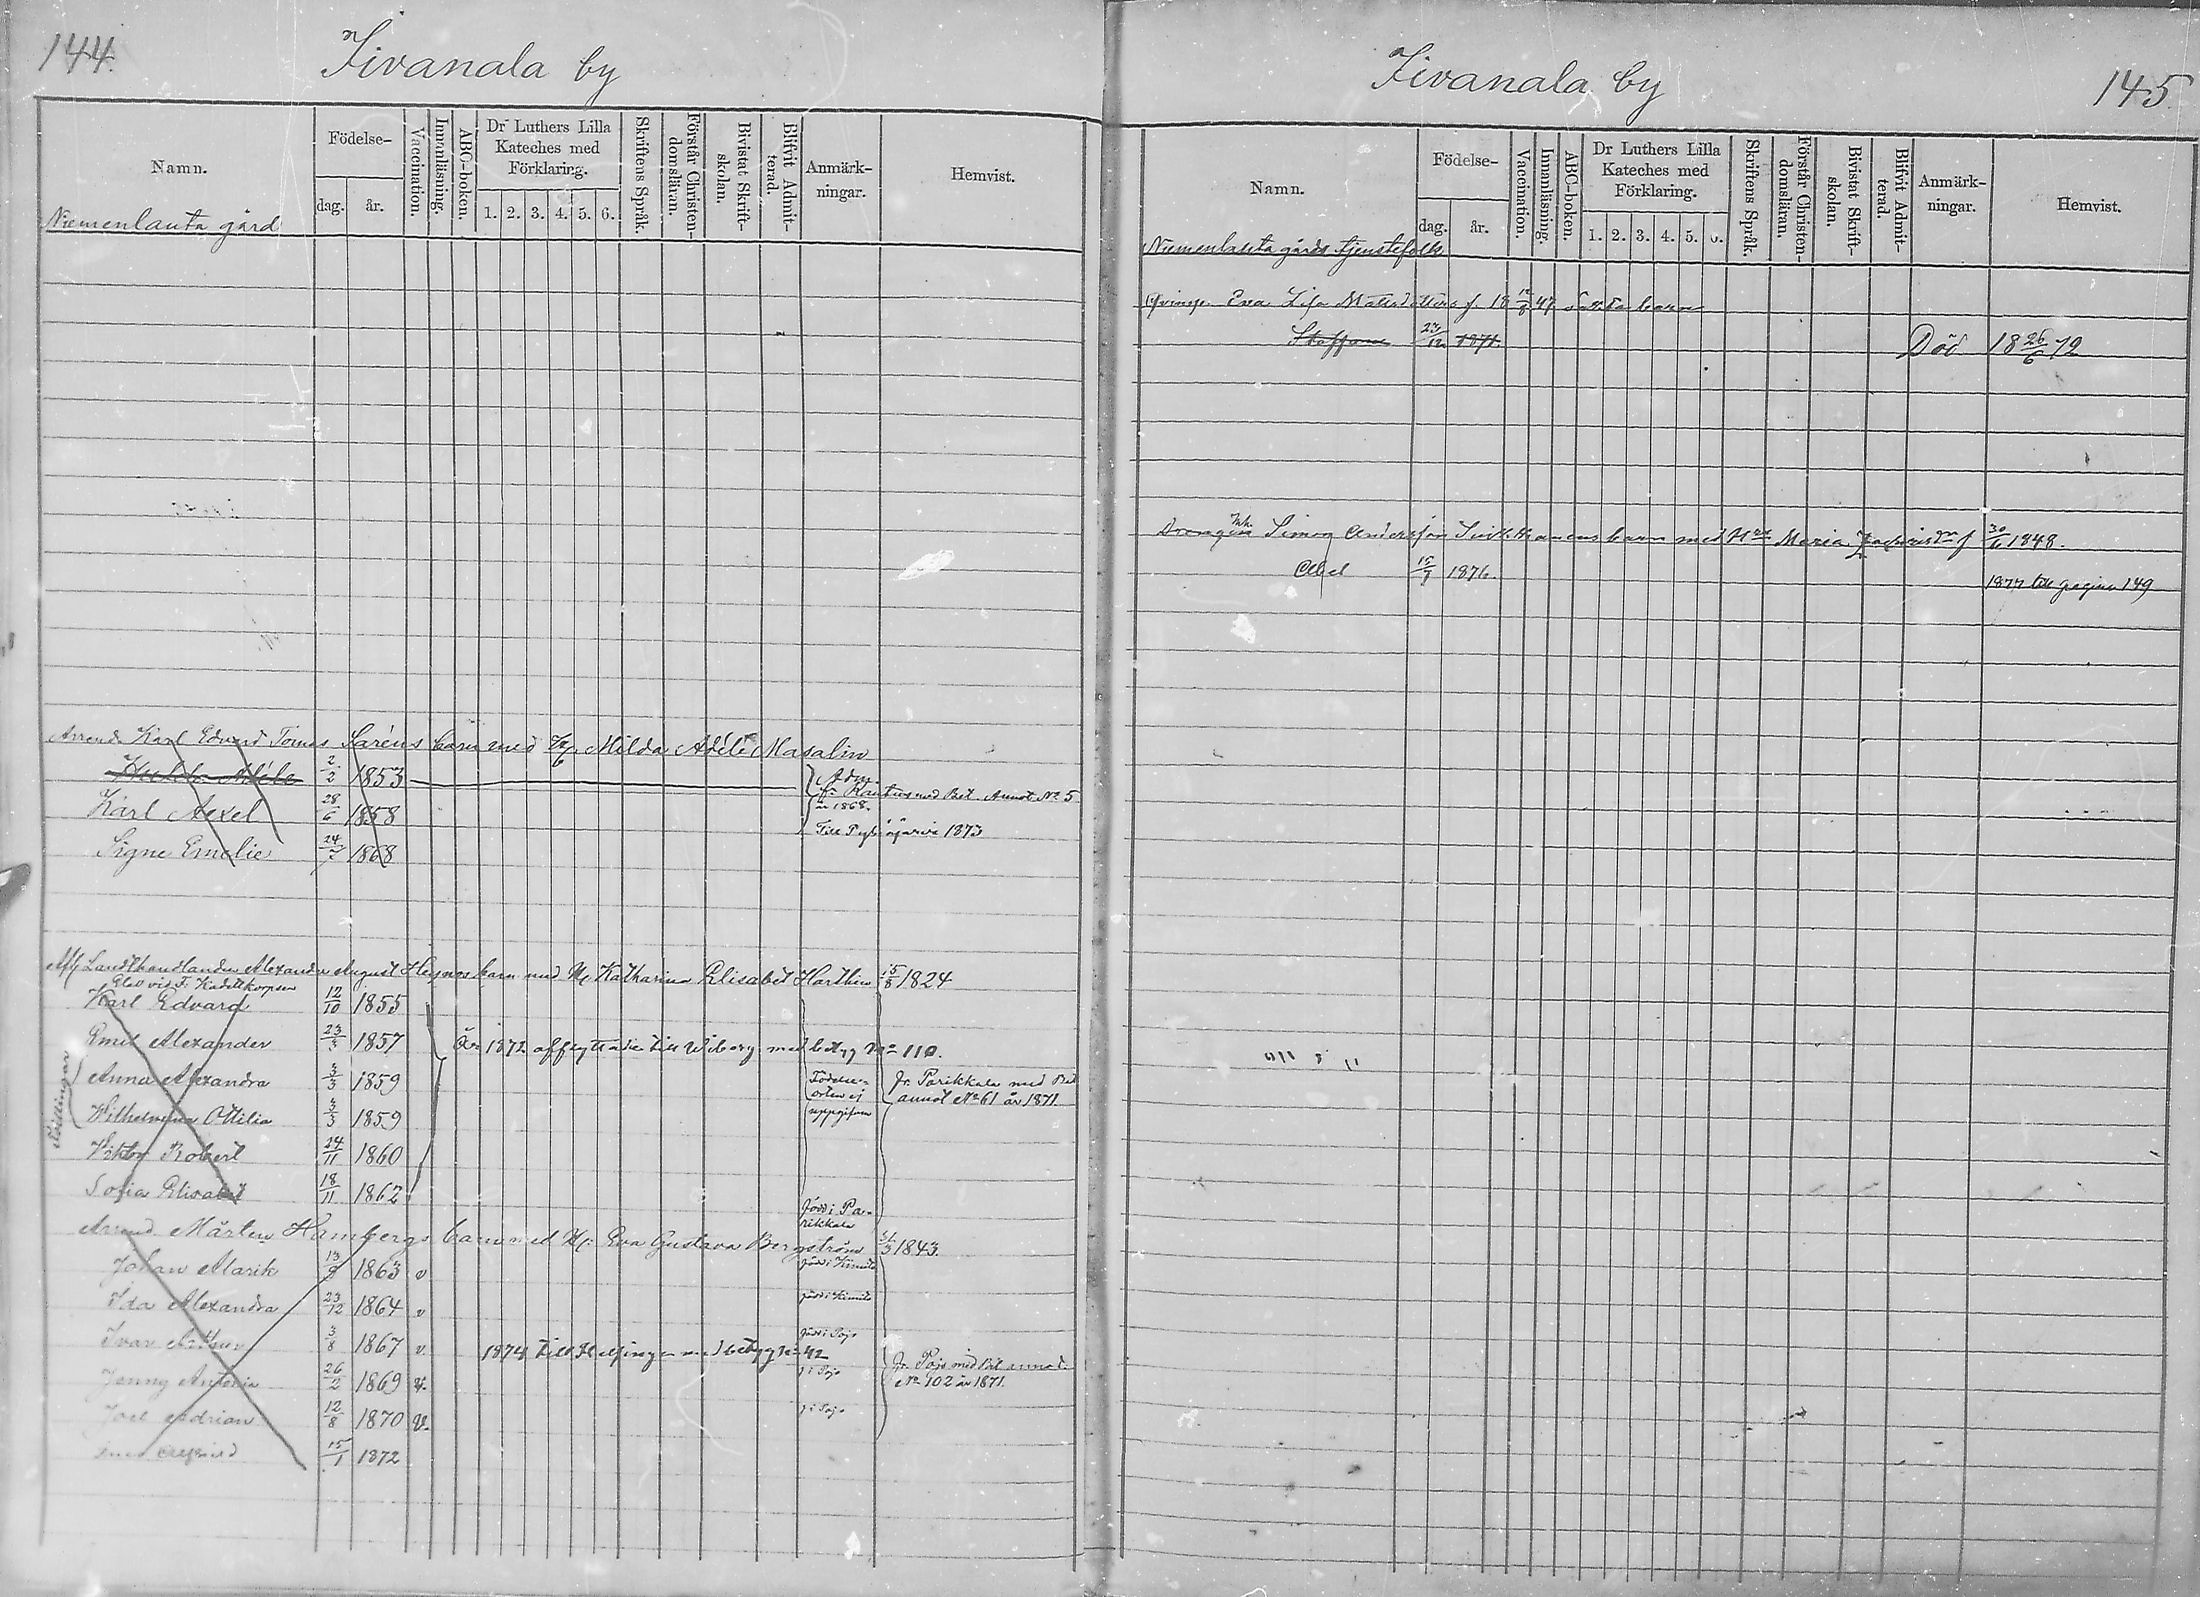 144.
Iivanala by
Namn.
Födelse-
dag.
år.
Vaccination.
Innanläsning.
ABC-boken.
Dr Luthers Lilla
Kateches med
Förklaring.
1. 2. 3. 4. 5. 6.
Skriftens Språk.
Förstår Christen-
domsläran.
Bivistat Skrift-
skolan.
Blifvit Admit-
terad.
Anmärk-
ningar.
Hemvist.
Niemenlauta gård
Arrend. Karl Edvard Tomas Saréns barn med Milda Adéle Masalin
2/2 1853
Adm.
fr. Rautus med Bet. Annot. No 5
år 1868.
Karl Axel 28/6 1858
Till 1873
Signe Emelie 24/7 1868
Afl. Landthandlanden Alexander August barn med H. Katharina Elisabet Harthin 15/8 1824
Elev vid F. Kadettkorpsen
Karl Edvard 12/10 1855
Emil Alexander 23/3 1857
År 1872 afflyttade till Wiborg med betyg No 110.
Tvillingar
Anna Alexandra 3/3 1859
Födelse-
orten ej
uppgifven
fr. Parikkala med Bet
annot No 61 år 1871
Wilhelmina Ottilia 3/3 1859
Viktor Robert 24/11 1860
Sofia Elisabet 18/11 1862
född i Pa-
rikkala
Arrend. Mårten Hambergs barn med H. Eva Gustava Bergström 1843.
Johan Alarik 13/9 1863 v
född i Kimito
Ida Alexandra 23/12 1864 v
född i Kimito
Ivar Arthur 3/8 1867 v.
född i Pojo
1874 till Helsinge med betyg No 42
Jenny Antonia 26/2 1869 v.
f. i Pojo
fr. Pojo med Bet annot.
No 102 år 1871.
Joel Adrian 12/8 1870 v.
f. i Pojo
15/1 1872
Iivanala by
145
Namn.
Födelse-
dag.
år.
Vaccination.
Innanläsning.
ABC-boken.
Dr Luthers Lilla
Kateches med
Förklaring.
1. 2. 3. 4. 5. 6.
Skriftens Språk.
Förstår Christen-
domsläran.
Bivistat Skrift-
skolan.
Blifvit Admit-
terad.
Anmärk-
ningar.
Hemvist.
Niemenlauta gårds tjenstefolk
Qvinsp. Eva Lisa Matsdotters f. 18 47 barn
Staffan 23/12 1871.
Död 18 26/6 72
Drengen Simon Andersson barn med Maria f 30/6 1848.
Abel 15/7 1876.
1877 till pagina 149